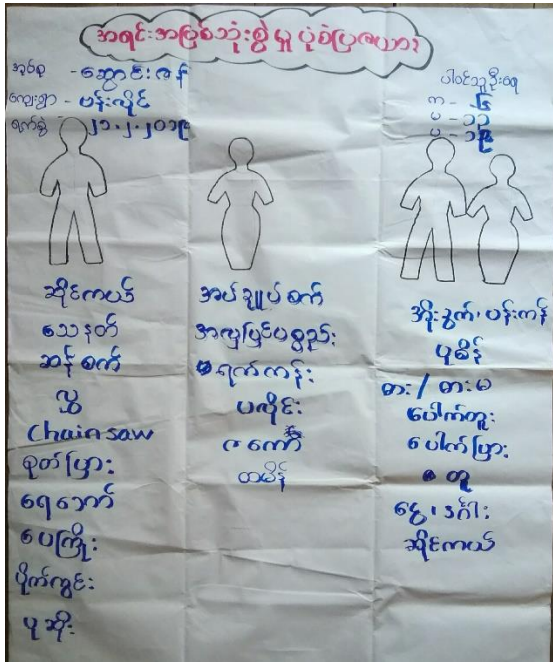 အရင်းအမြစ်သုံးစွဲမှုပုံစံပြဇယား
အုပ်စု - ဆောင်းဇန်
ကျေးရွာ - ဗန်းလိုင်
ရက်စွဲ - ၂၁.၂.၂၀၁၉
ပါဝင်သူဦးရေ
က - ၆
မ - ၁၃
ပ - ၁၉
ဆိုင်ကယ်
သေနတ်
ဆန်စက်
လွှ
Chain saw
စုတ်ပြား
ရေအော်
ပေကြိုး
ပိုက်ကွင်း
ပုဆိုး
အပ်ချုပ်စက်
အလှပြင်ပစ္စည်း
ရက်ကန်း
ပလိုင်း
ဇကော
ထမိန်
အိုးခွက်၊ ပန်းကန်
ပုဆိန်
ဓား / ဓားမ
ပေါက်တူး
ပေါက်ပြား
တူ
ငွေ၊ ဒင်္ဂါး
ဆိုင်ကယ်